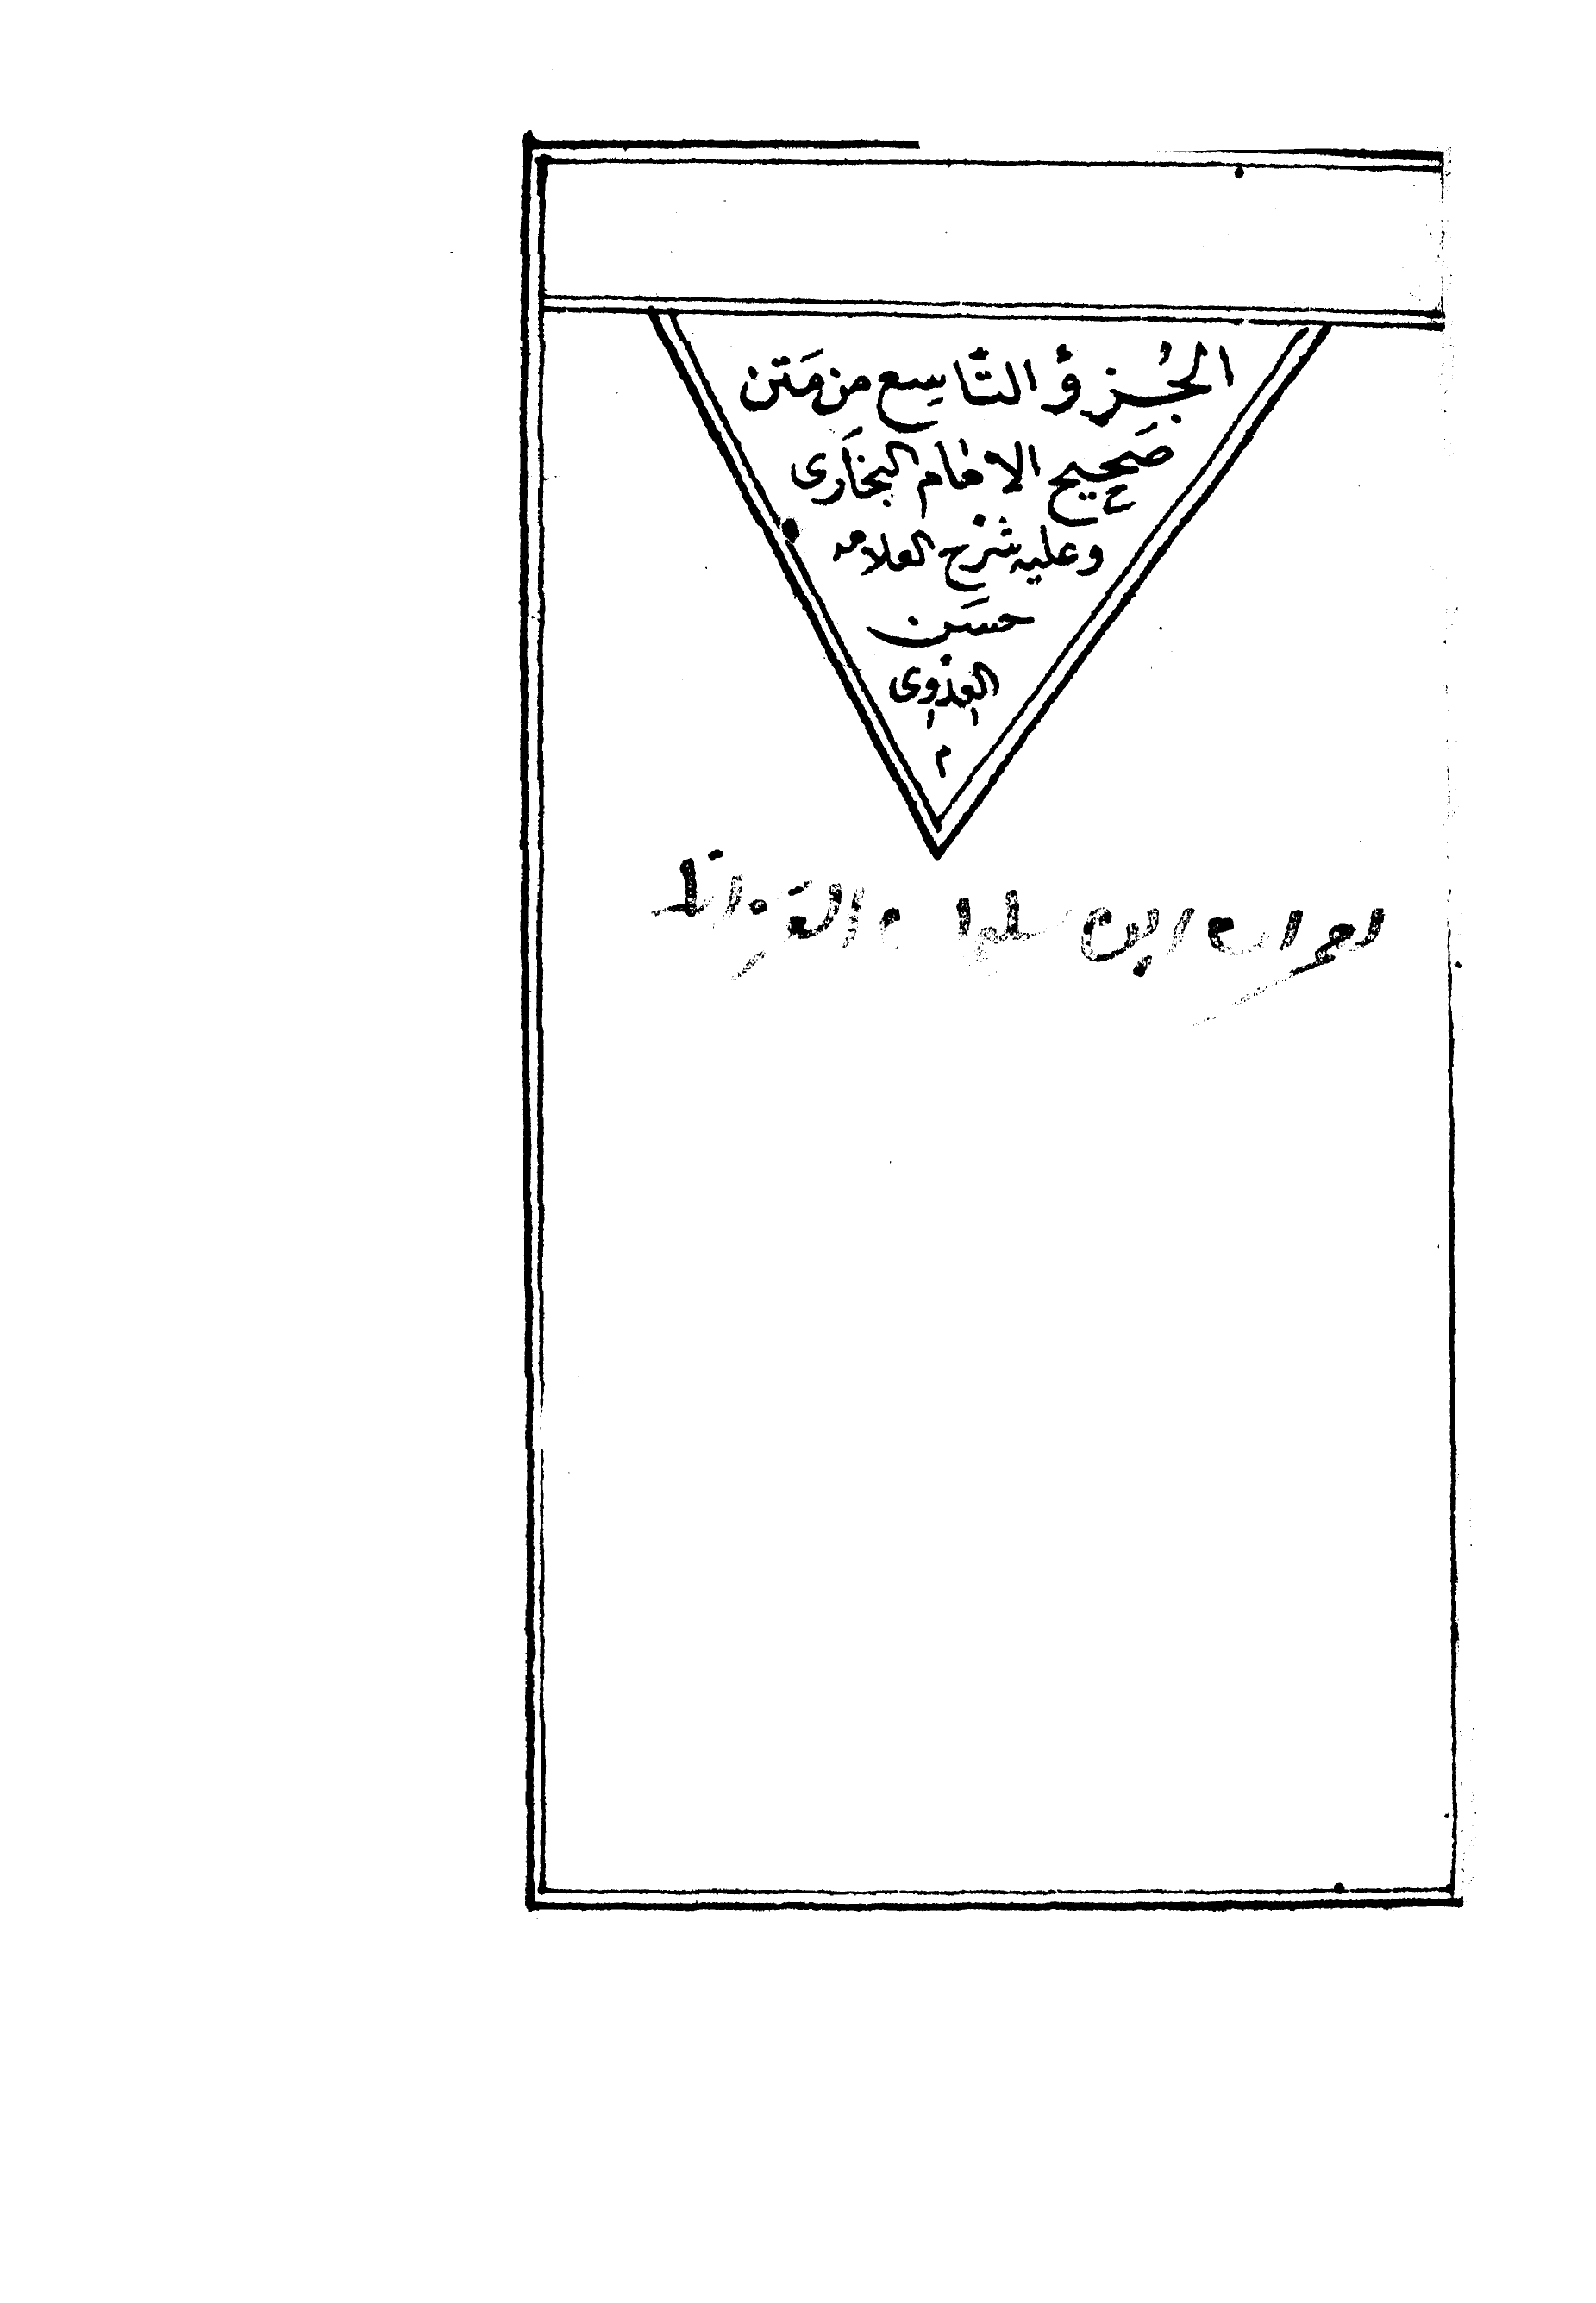 الجُزؤُ التَّاسِع من مَتن
صَحِيح الامام البخَارى
وعليه شرح العلامه
حسَن
العدوى
م
ابن سليمان